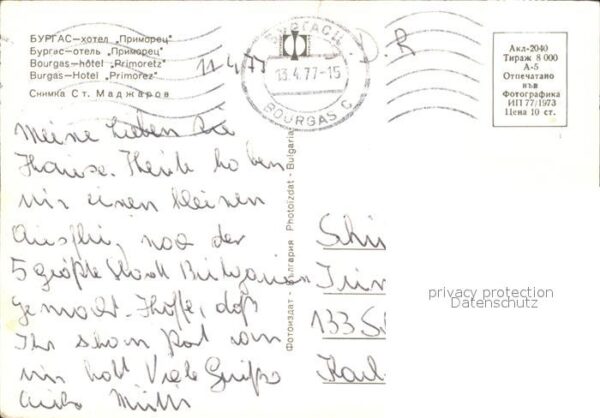 БУРГАС—хотел „Приморец"
Бургас—отель „Приморец"
Bourgas—hôtel „Primoretz"
Burgas—Hotel „Primorez"
Снимка Ст. Маджаров
11.4.77
БУРГАС Ц
13.4.77-15
BOURGAS C
R
Акл-2040
Тираж 8 000
А-5
Отпечатано
във
Фотографика
ИП 77/1973
Цена 10 ст.
Meine Lieben zu
Hause. Heute haben
wir einen kleinen
Ausflug nach der
5 größte Stadt Bulgarien
gemacht. Hoffe, daß
Ihr schon Post von
mir habt Viele Grüße
Mutti
Фотоиздат - България Photoizdat - Bulgaria
133 S
Karl
privacy protection
Datenschutz